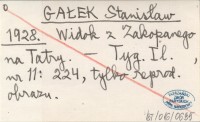 GAŁEK Stanisław
1928. Widok z Zakopanego
na Tatry. — Tyg. Il.,
nr 11: 224, tylko reprod.
obrazu.